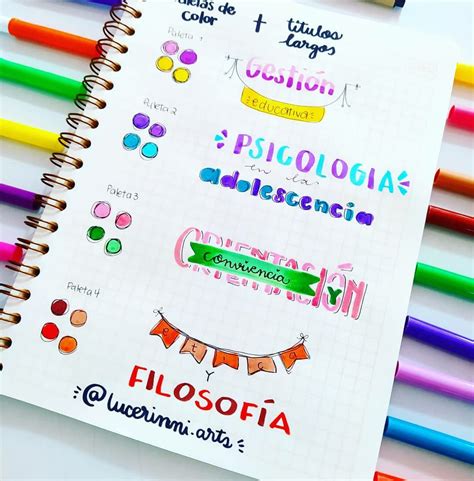 de
color + títulos
largos
Paleta 1
Gestión
educativa
Paleta 2
PSICOLOGIA
en la
adolescencia
Paleta 3
ORIENTACIÓN Y
conviencia
Paleta 4
etica
Y
FILOSOFÍA
@lucerinni.arts